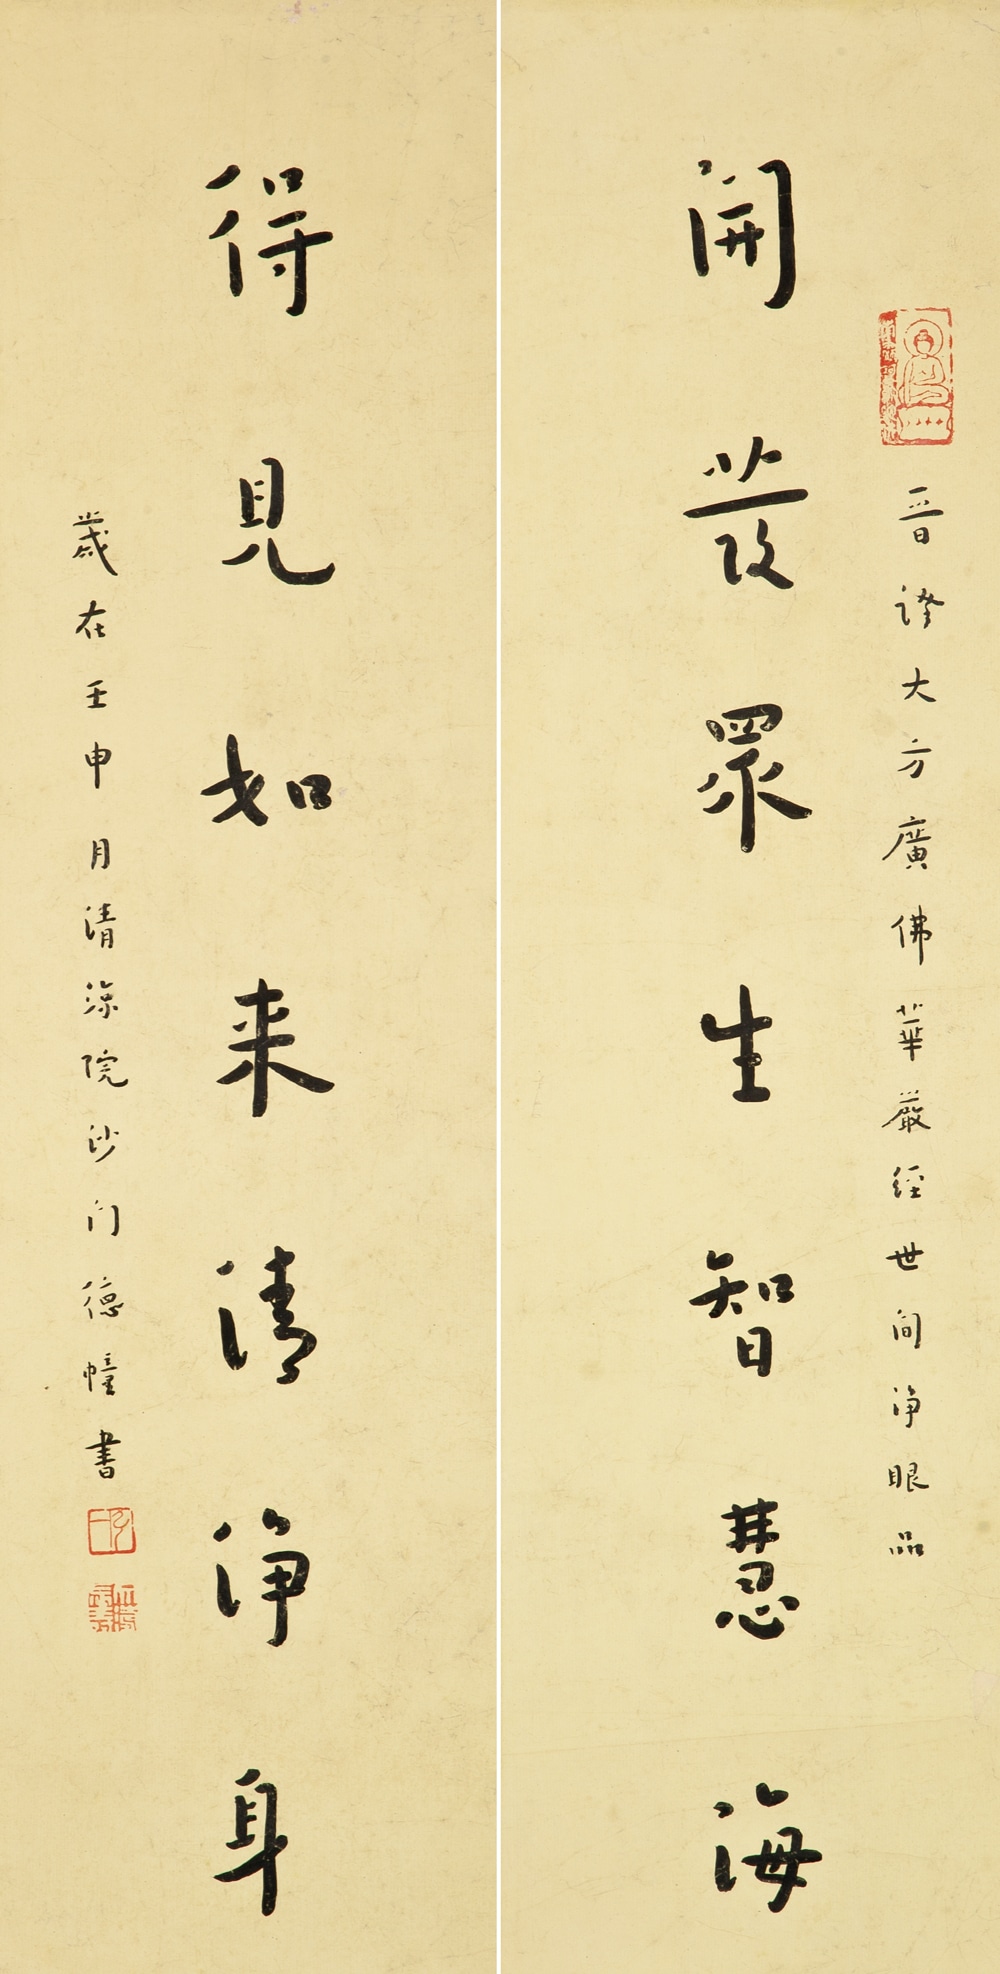 晋譯大方廣佛華嚴經世間淨眼品
開發眾生智慧海
得見如来清淨身
歲在壬申月清涼院沙门德幢書